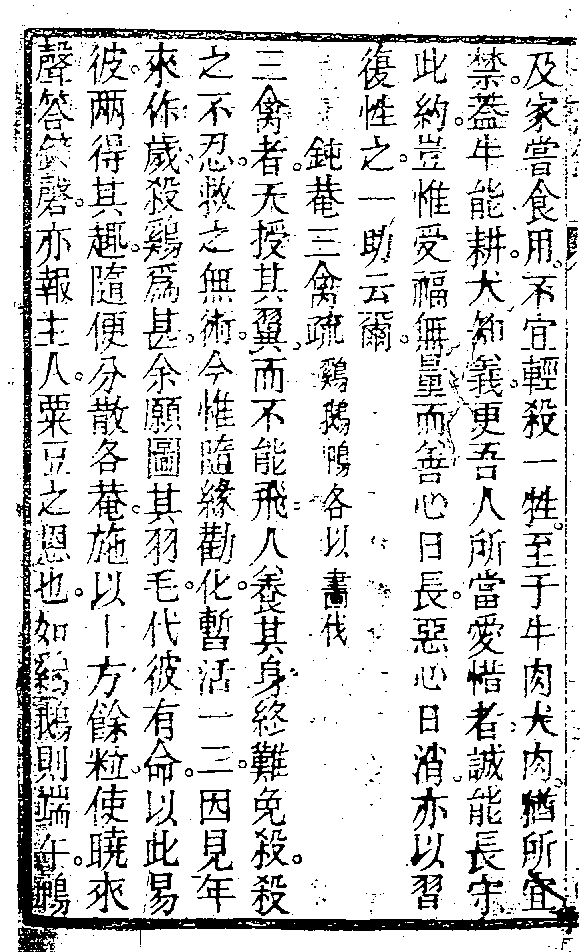 及家嘗食用。不宜輕殺一牲。至于牛肉犬肉。猶所宜
禁。蓋牛能耕。犬知義。更吾人所當愛惜者。誠能長守
此約。豈惟受福無量。而善心日長。惡心日消。亦以習
復性之一助云爾。
鈍菴三禽疏 鷄鵝鴨各以畵代
三禽者。天授其翼。而不能飛。人養其身。終難免殺。殺
之不忍。救之無術。今惟隨緣勸化。暫活一二。因見年
來作歲。殺鷄爲甚。余願圖其羽毛。代彼有命。以此易
彼。两得其趣。隨便分散各菴。施以十方餘粒。使曉來
聲答 磬。亦報主人粟豆之恩也。如 鵝則端午。鴨